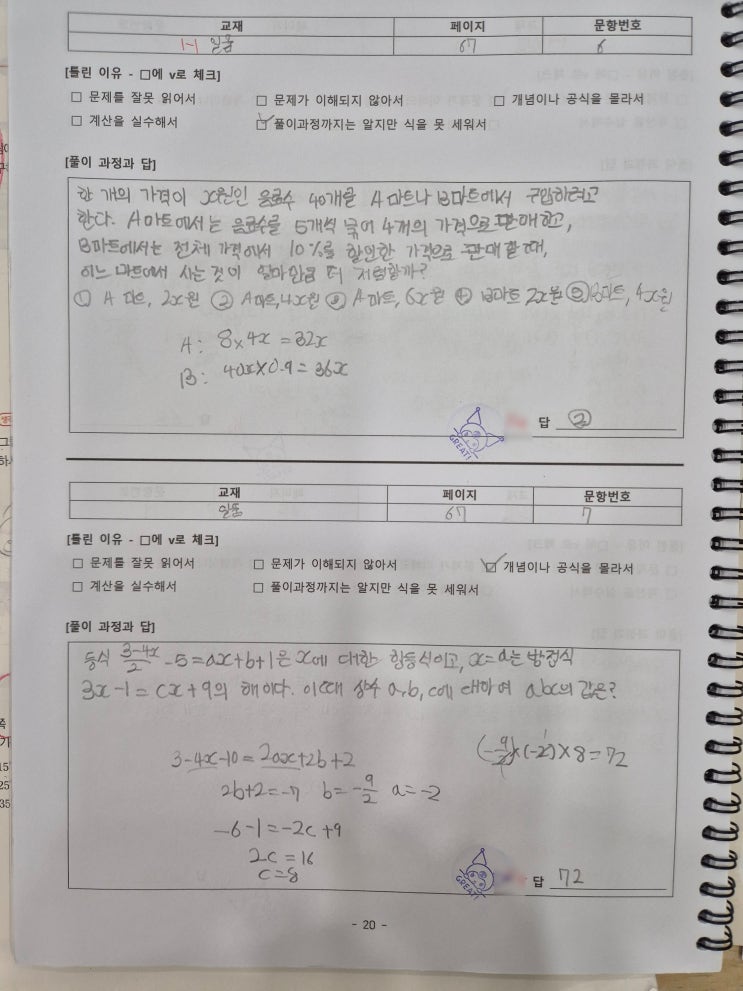 교재 페이지 문항번호
1-1 일품 67 6
[틀린 이유 - □에 v로 체크]
□ 문제를 잘못 읽어서 □ 문제가 이해되지 않아서 □ 개념이나 공식을 몰라서
□ 계산을 실수해서 ☑ 풀이과정까지는 알지만 식을 못 세워서
[풀이 과정과 답]
한 개의 가격이 x원인 음료수 40개를 A마트나 B마트에서 구입하려고
한다. A마트에서는 음료수를 5개씩 묶어 4개의 가격으로 판매하고,
B마트에서는 전체 가격에서 10%를 할인한 가격으로 판매할 때,
어느 마트에서 사는 것이 얼마만큼 더 저렴할까?
① A 마트, 2x원 ② A마트, 4x원 ③ A 마트, 6x원 ④ B마트 2x원 ⑤ B마트, 4x원
A: 8×4x=32x
B: 40x×0.9=36x
GREAT!
답 ②
교재 페이지 문항번호
일품 67 7
[틀린 이유 - □에 v로 체크]
□ 문제를 잘못 읽어서 □ 문제가 이해되지 않아서 ☑ 개념이나 공식을 몰라서
□ 계산을 실수해서 □ 풀이과정까지는 알지만 식을 못 세워서
[풀이 과정과 답]
등식 3-4x/2 -5=ax+b+1은 x에 대한 항등식이고, x=a는 방정식
3x-1=cx+9의 해이다. 이때 상수 a,b,c에 대하여 abc의 값은?
3-4x-10=2ax+2b+2
(-9/2)×(-2)×8=72
2b+2=-7 b=-9/2 a=-2
-6-1=-2c+9
2c=16
c=8
GREAT!
답 72
- 20 -